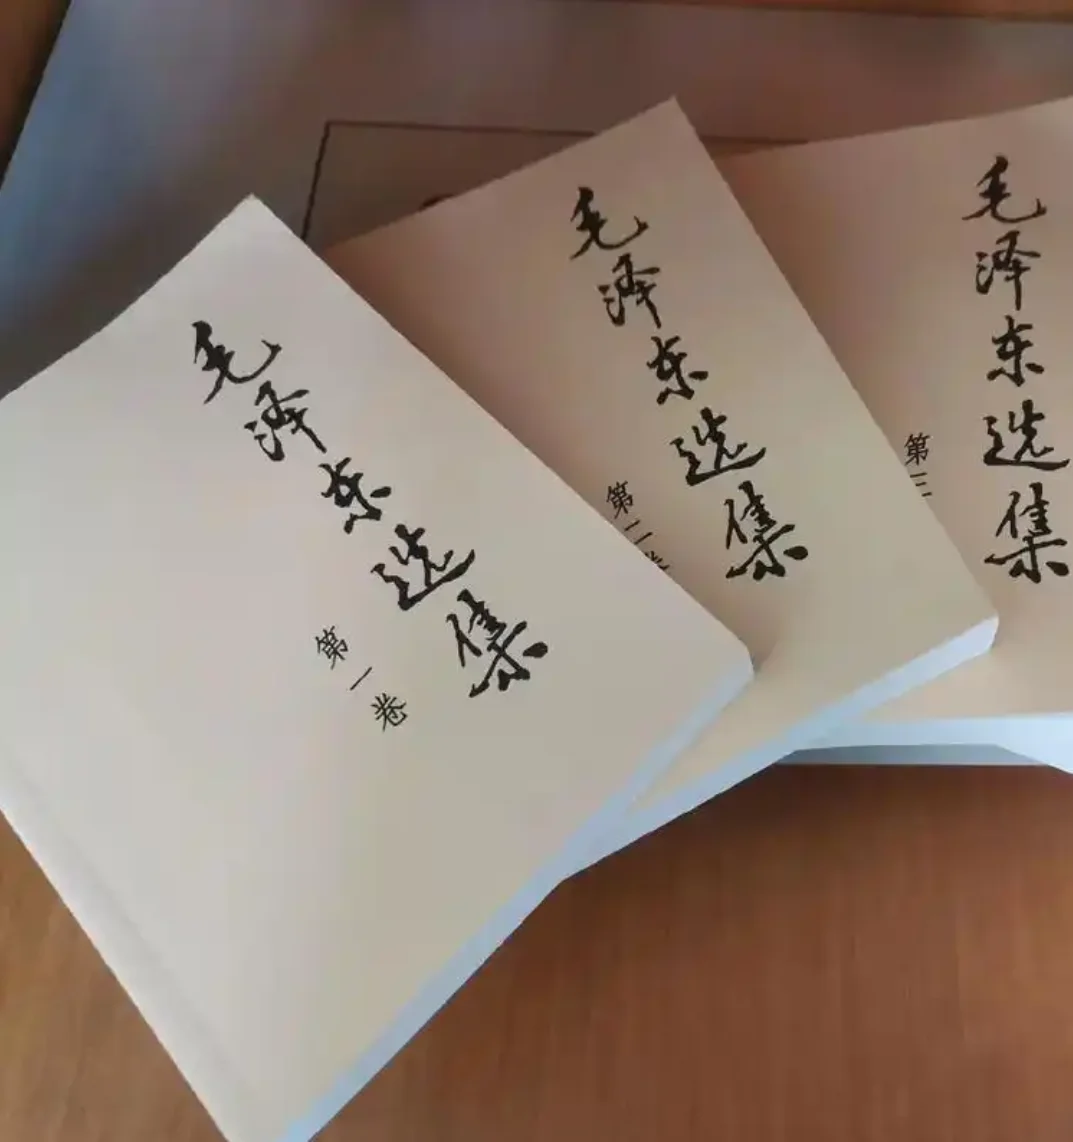 毛泽东选集
第一卷
毛泽东选集
第二卷
毛泽东选集
第三